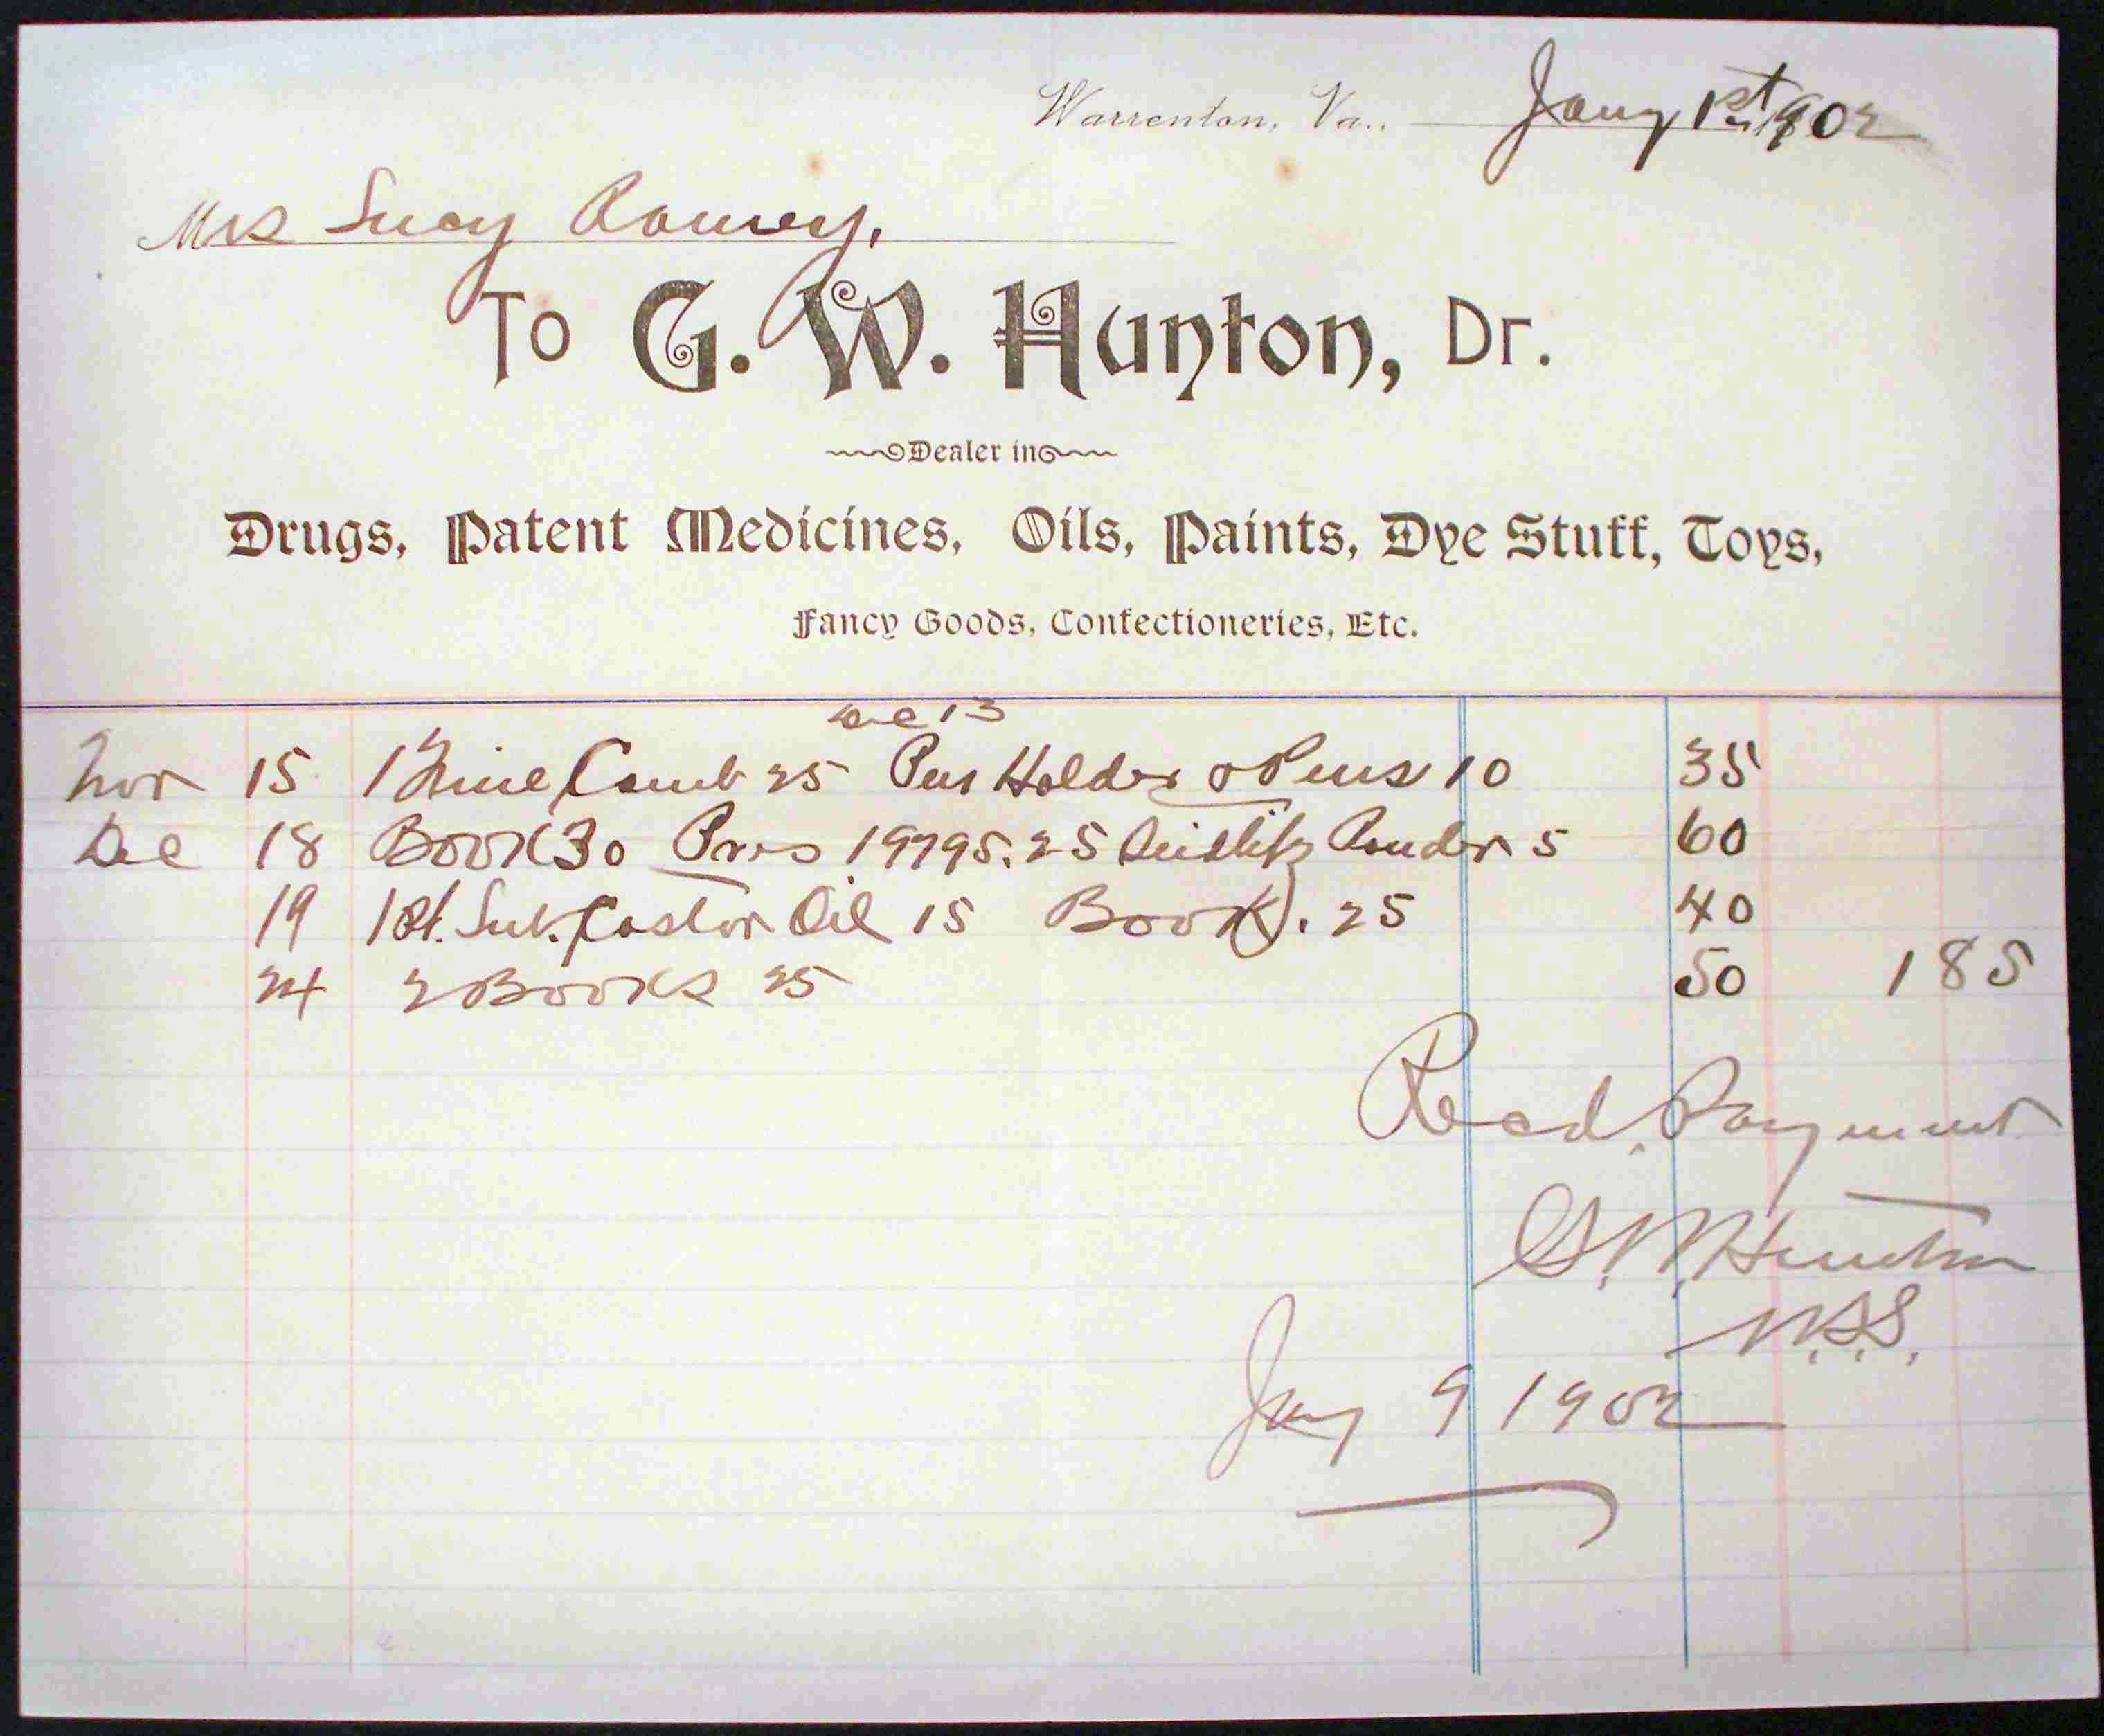 Warrenton, Va., Jany 1st 1902
Mrs Lucy Ramey,
To G. W. Hunton, Dr.
Dealer in
Drugs, Patent Medicines, Oils, Paints, Dye Stuff, Toys,
Fancy Goods, Confectioneries, Etc.
Dec 13
Nov 15 1 Fine Comb 25 Pen Holder & Pens 10 35
Dec 18 Book 30 Pres 19795. 25 Seidlitz Powder 5 60
19 1 Bt. Castor Oil 15 Book. 25 40
24 2 Books 25 50 185
Recd. Payment
G. W. Hunton
Jany 9 1902